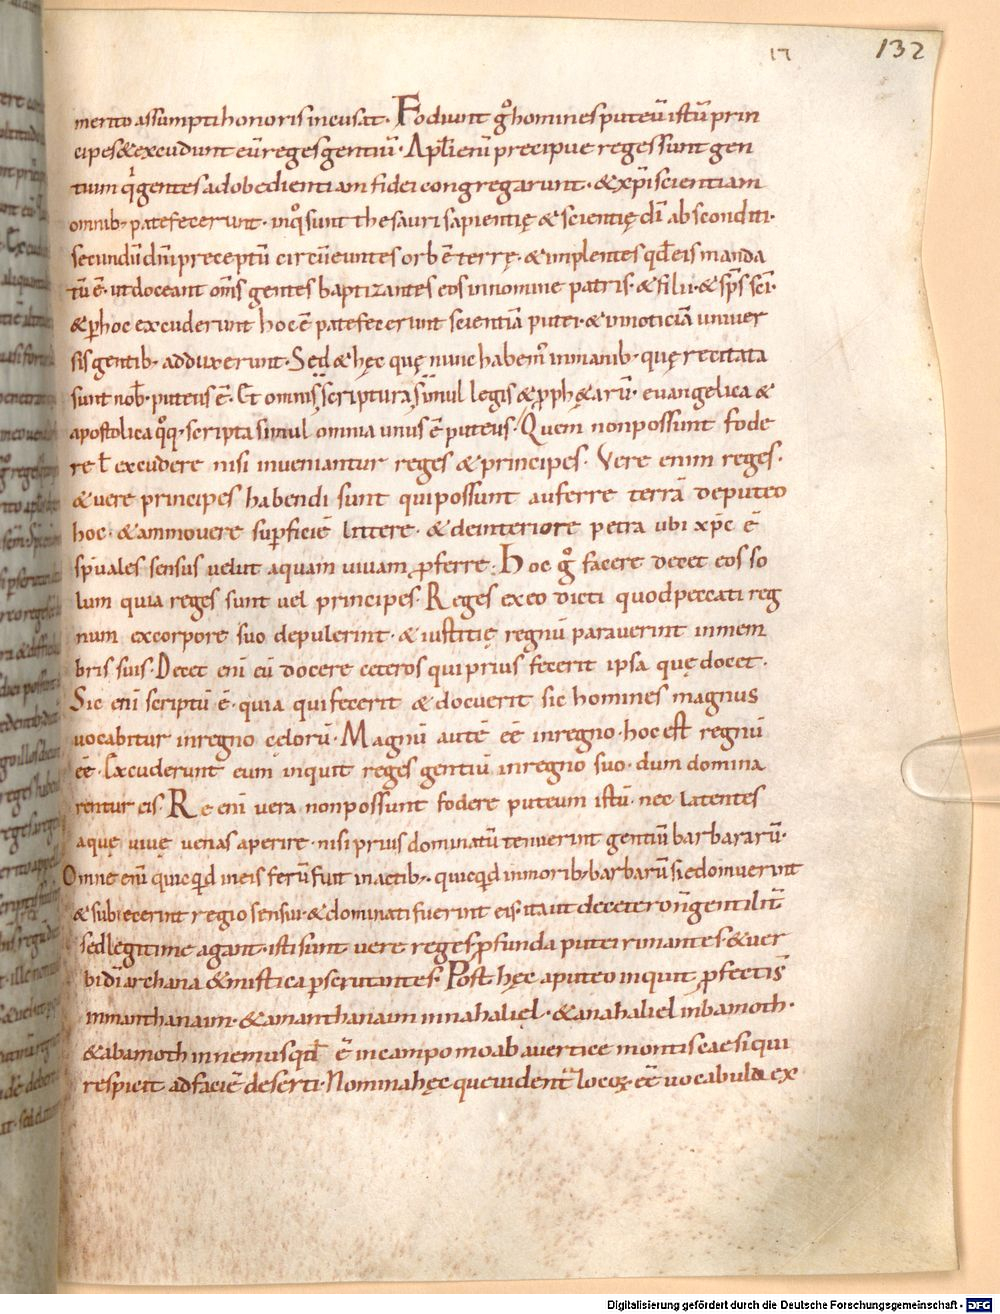 17 132
merito assumpti honoris incusat. Fodiunt gͦ homines puteū istū prin
cipes & excudunt eū reges gentiū. Apl̄i enī precipue reges sunt gen
tium qͥ gentes ad obedientiam fidei congregarunt. & xp̄i scientiam
omnib; patefecerunt. in qͦ sunt thesauri sapientię & scientię dī absconditi.
secundū dn̄i preceptū circūeuntes orbē terrę. & implentes qd̄ eis manda
tū ē. ut doceant om̄s gentes baptizantes eos in nomine patris. & filii. & sp̄s sc̄i.
& ꝑ hoc excuderunt hoc ē patefecerunt scientiā putei. & in noticiā univer
sis gentib. adduxerunt. Sed & hęc quę nunc habem᾽ in manib. quę recitata
sunt nob̄. puteus ē. Et omnis scriptura simul legis & ꝓph&arū. evangelica &
apostolica qͦq. scripta simul omnia unus ē puteus. Quem non possunt fode
re ł excudere nisi inveniantur reges & principes. Vere enim reges.
& vere principes habendi sunt qui possunt auferre terrā de puteo
hoc. & ammovere suꝑficiē littere. & de interiore petra ubi xp̄c ē
sp̄uales sensus velut aquam vivam ꝓferre. Hoc gͦ facere decet eos so
lum quia reges sunt vel principes. Reges ex eo dicti quod peccati reg
num ex corpore suo depulerint. & iustitię regnū paraverint in mem
bris suis. Decet enī eū docere ceteros qui prius fecerit ipsa quę docet.
Sic enī scriptū ē. quia qui fecerit & docuerit sic homines magnus
vocabitur in regno cęlorū. Magnū autē eē in regno. hoc est regnū
eē. Excuderunt eum inquit reges gentiū in regno suo. dum domina
rentur eis. Re enī vera non possunt fodere puteum istū. nec latentes
aquę vivę venas aperire. nisi prius dominatū tenuerint gentiū barbararū.
Omne enī quicqd in eis ferū fuit in actib;. quicqd in morib; barbarū si edomuerint
& subiecerint regio sensui. & dominati fuerint eis. ita ut de cetero n̄ gentilit̄
sed legitime agant. isti sunt vere reges ꝓfunda putei rimantes. & ver
bi dī archana & mistica ꝑscrutantes. Post hęc a puteo inquit ꝓfecti s̄
in manthanaim. & a manthanaim in nahaliel. & a nahaliel in bamoth.
& a bamoth in nemus qd̄ ē in campo moab a vertice montis caesi qui
respicit ad faciē deserti. Nomina hęc que videnť locoꝝ eē vocabula ex
Digitalisierung gefördert durch die Deutsche Forschungsgemeinschaft - DFG